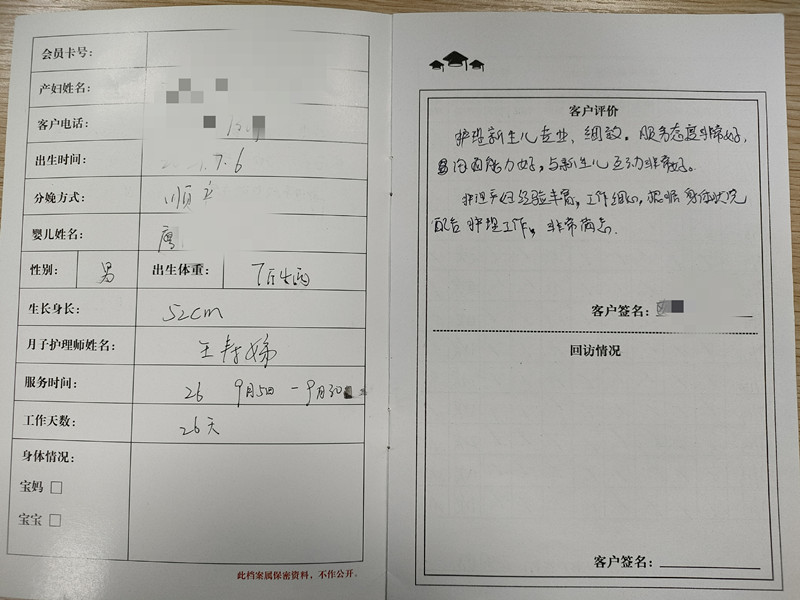 会员卡号：
产妇姓名：
客户电话：
出生时间： 7.6
分娩方式： 顺产
婴儿姓名：
性别： 男 出生体重： 7斤
生长身长： 52cm
月子护理师姓名： 王寿娣
服务时间： 26 9月5日－9月30
工作天数： 26天
身体情况：
宝妈
宝宝
此档案属保密资料，不作公开。
客户评价
护理新生儿专业、细致。服务态度非常好，
能力好，与新生儿互动非常好。
护理产妇经验丰富，工作细心，根据身体状况
配合护理工作，非常满意.
客户签名：
回访情况
客户签名：